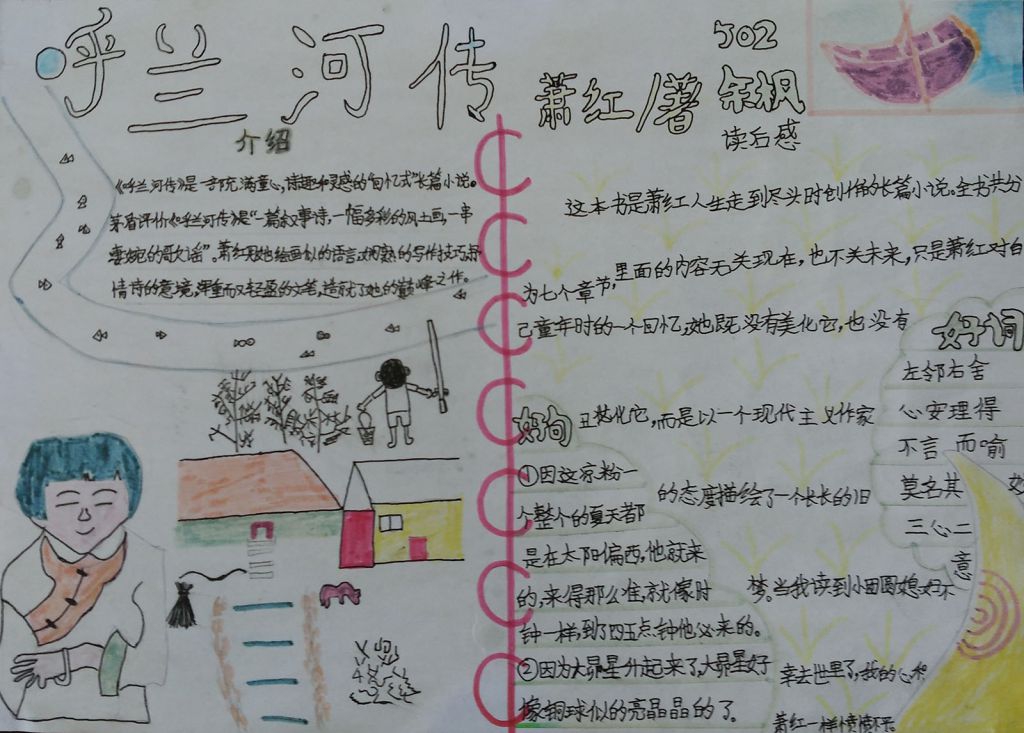 呼兰河传
502
萧红/著 余枫
介绍
《呼兰河传》是一部充满童心,诗趣和灵感的“回忆式”长篇小说。
茅盾评价《呼兰河传》是“一篇叙事诗,一幅多彩的风土画,一串
凄婉的歌谣”。萧红用她绘画似的语言,娴熟的写作技巧,抒
情诗的意境,浑重而又轻盈的文笔,造就了她的巅峰之作。
读后感
这本书是萧红人生走到尽头时创作的长篇小说。全书共分
为七个章节,里面的内容无关现在,也不关未来,只是萧红对自
己童年时的一个回忆,她既没有美化它,也没有
丑化它,而是以一个现代主义作家
的态度描绘了一个长长的旧
梦。当我读到小团圆媳妇不
幸去世里了,我的心和
萧红一样愤愤不平。
好词
左邻右舍
心安理得
不言而喻
莫名其妙
三心二意
好句
①因这家粉一
个整个的夏天都
是在太阳偏西,他就来
的,来得那么准,就像时
钟一样,到了四五点钟他必来的。
②因为大昴星升起来了,大昴星好
像铜球似的亮晶晶的了。